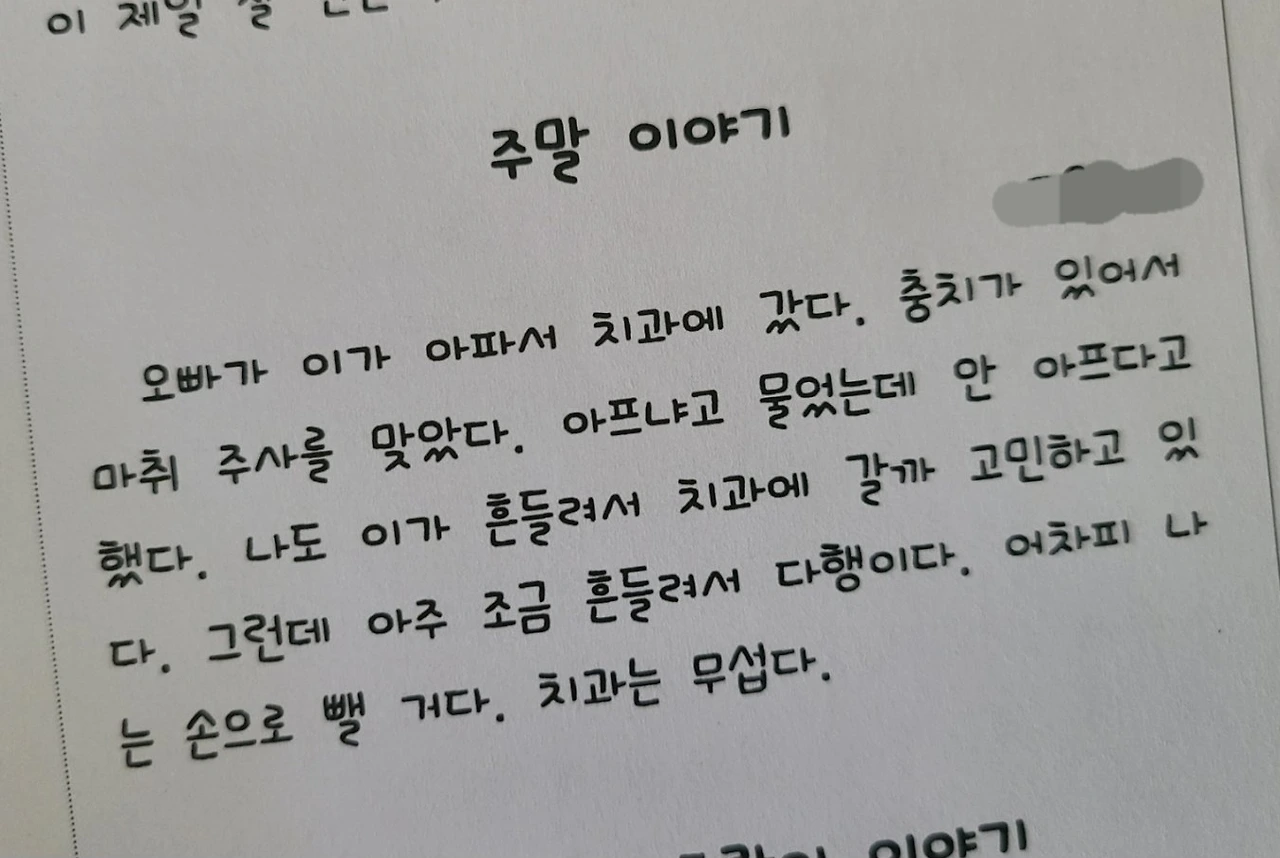 이 제일
주말 이야기
오빠가 이가 아파서 치과에 갔다. 충치가 있어서
마취 주사를 맞았다. 아프냐고 물었는데 안 아프다고
했다. 나도 이가 흔들려서 치과에 갈까 고민하고 있
다. 그런데 아주 조금 흔들려서 다행이다. 어차피 나
는 손으로 뺄 거다. 치과는 무섭다.
이야기